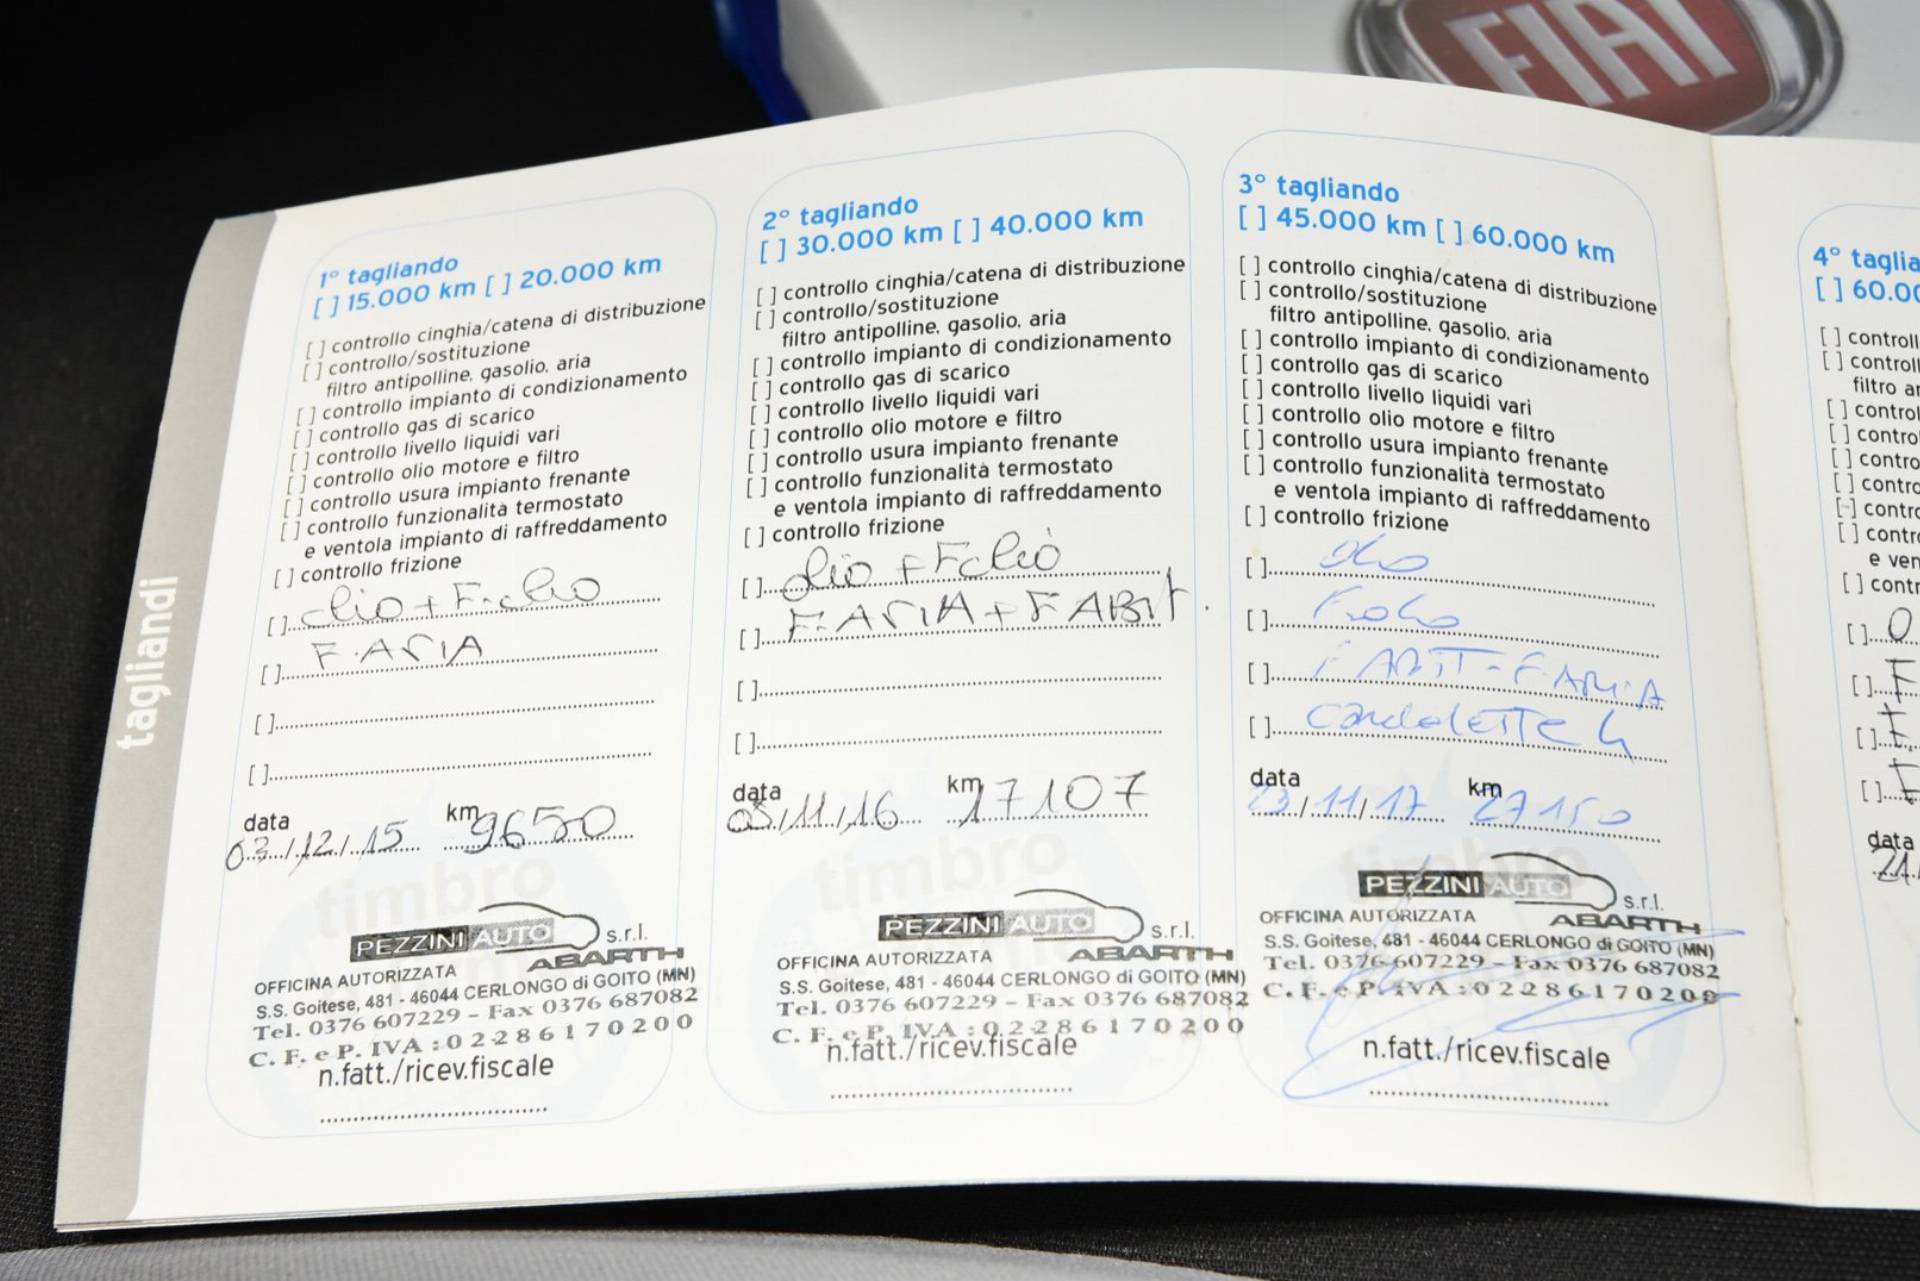 FIAT
tagliandi
1° tagliando
[ ] 15.000 km [ ] 20.000 km
[ ] controllo cinghia/catena di distribuzione
[ ] controllo/sostituzione
filtro antipolline, gasolio, aria
[ ] controllo impianto di condizionamento
[ ] controllo gas di scarico
[ ] controllo livello liquidi vari
[ ] controllo olio motore e filtro
[ ] controllo usura impianto frenante
[ ] controllo funzionalità termostato
e ventola impianto di raffreddamento
[ ] controllo frizione
[ ] olio + F.olio
[ ] F. ARIA
[ ]
[ ]
data km
03/12/15 9650
timbro
PEZZINI AUTO s.r.l.
OFFICINA AUTORIZZATA ABARTH
S.S. Goitese, 481 - 46044 CERLONGO di GOITO (MN)
Tel. 0376 607229 - Fax 0376 687082
C. F. e P. IVA : 02286170200
n.fatt./ricev.fiscale
2° tagliando
[ ] 30.000 km [ ] 40.000 km
[ ] controllo cinghia/catena di distribuzione
[ ] controllo/sostituzione
filtro antipolline, gasolio, aria
[ ] controllo impianto di condizionamento
[ ] controllo gas di scarico
[ ] controllo livello liquidi vari
[ ] controllo olio motore e filtro
[ ] controllo usura impianto frenante
[ ] controllo funzionalità termostato
e ventola impianto di raffreddamento
[ ] controllo frizione
[ ] olio + F olio
[ ] F. ARIA + F ABIT.
[ ]
[ ]
data km
03/11/16 17107
timbro
PEZZINI AUTO s.r.l.
OFFICINA AUTORIZZATA ABARTH
S.S. Goitese, 481 - 46044 CERLONGO di GOITO (MN)
Tel. 0376 607229 - Fax 0376 687082
C. F. e P. IVA : 02286170200
n.fatt./ricev.fiscale
3° tagliando
[ ] 45.000 km [ ] 60.000 km
[ ] controllo cinghia/catena di distribuzione
[ ] controllo/sostituzione
filtro antipolline, gasolio, aria
[ ] controllo impianto di condizionamento
[ ] controllo gas di scarico
[ ] controllo livello liquidi vari
[ ] controllo olio motore e filtro
[ ] controllo usura impianto frenante
[ ] controllo funzionalità termostato
e ventola impianto di raffreddamento
[ ] controllo frizione
[ ] olio
[ ] F olio
[ ] F ABIT - F ARIA
[ ] candelette 4
data km
23/11/17 27150
PEZZINI AUTO s.r.l.
OFFICINA AUTORIZZATA ABARTH
S.S. Goitese, 481 - 46044 CERLONGO di GOITO (MN)
Tel. 0376 607229 - Fax 0376 687082
C. F. e P. IVA : 02286170200
n.fatt./ricev.fiscale
4° taglia
[ ] 60.00
[ ] controll
[ ] controll
filtro an
[ ] control
[ ] contro
[ ] contro
[ ] contro
[ ] contro
[ ] contr
e ven
[ ] contr
[ ] O
[ ] F
[ ] F
[ ] F
data
21